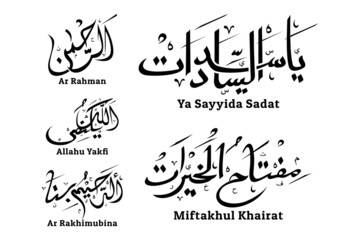 الرحمن
Ar Rahman
الله يكفي
Allahu Yakfi
الرحيم بنا
Ar Rakhimubina
يا سيد السادات
Ya Sayyida Sadat
مفتاح الخيرات
Miftakhul Khairat